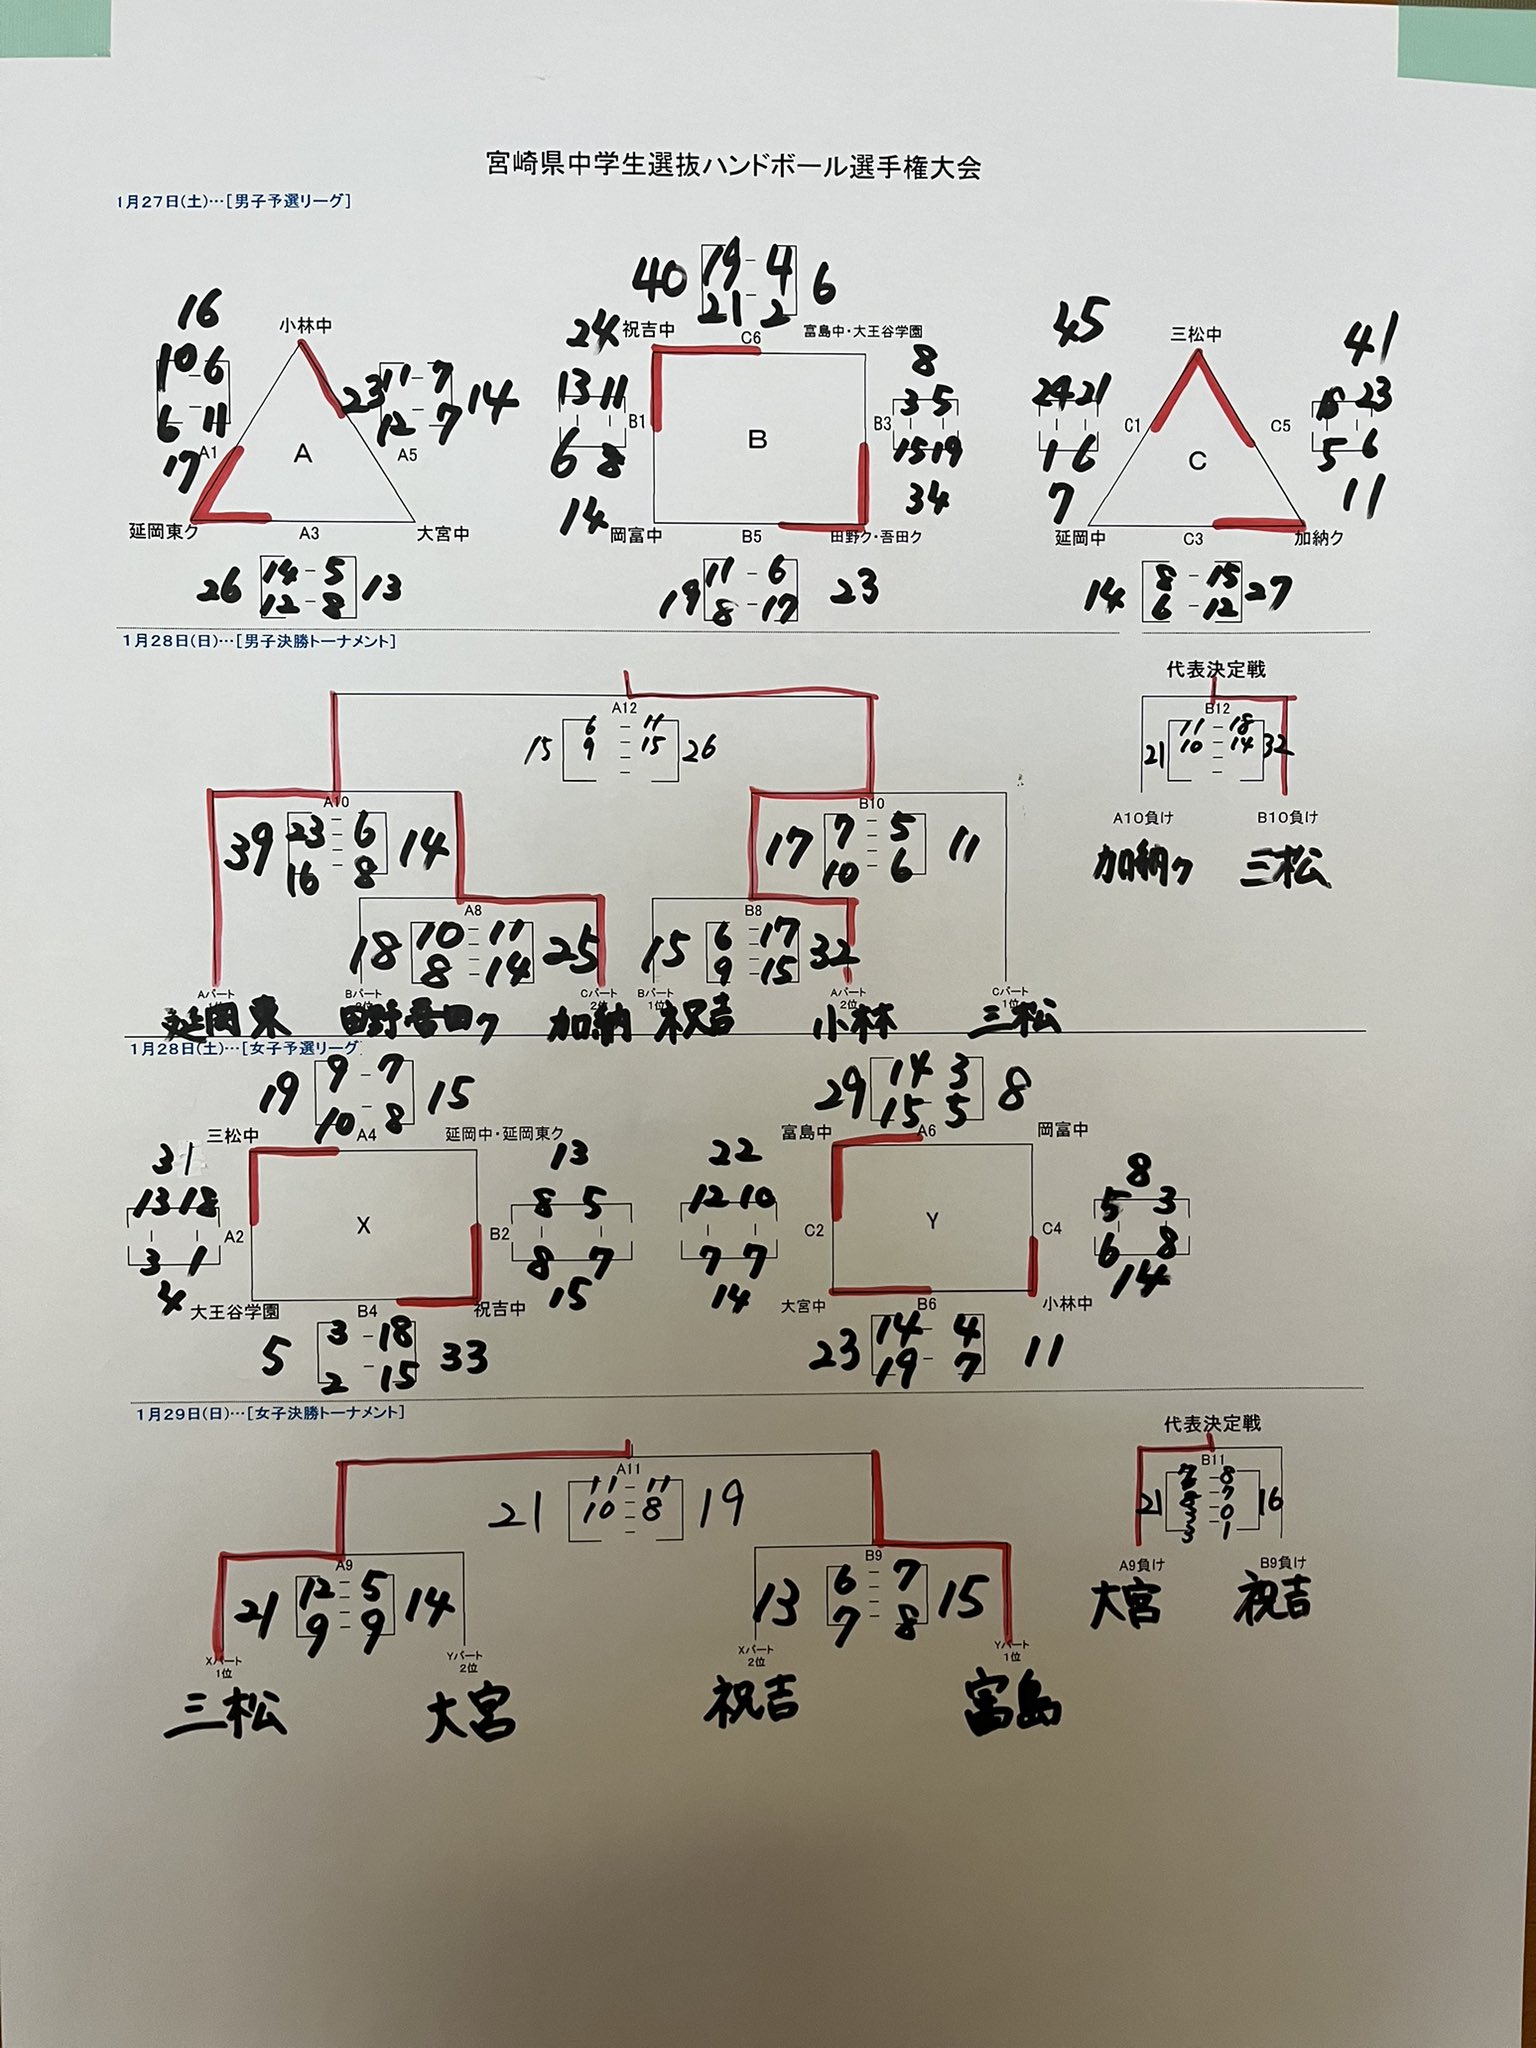 宮崎県中学生選抜ハンドボール選手権大会
1月27日(土)…[男子予選リーグ]
16
小林中
10-6
6-11
A1
17
23
11-7
12-7
14
A5
A
延岡東ク
A3
大宮中
26
14-5
12-8
13
40
19-4
21-2
6
24
祝吉中
C6
富島中・大王谷学園
13 11
B1
6 8
14
B
8
3 5
B3
15 19
34
岡富中
B5
田野ク・吾田ク
19
11-6
8-17
23
45
三松中
41
24 21
C1
1 6
7
C
23
C5
5 6
11
延岡中
C3
加納ク
14
8-15
6-12
27
1月28日(日)…[男子決勝トーナメント]
代表決定戦
A12
15
6-11
9-15
26
B12
21
11-18
10-14
32
A10負け
B10負け
加納ク
三松
A10
39
23-6
16-8
14
B10
17
7-5
10-6
11
A8
18
10-11
8-14
25
B8
15
6-17
9-15
32
Aパート
Bパート
Cパート
2位
Bパート
1位
Aパート
2位
Cパート
1位
延岡東
田野吾田ク
加納
祝吉
小林
三松
1月28日(土)…[女子予選リーグ]
19
9-7
10-8
15
三松中
A4
延岡中・延岡東ク
31
13 18
A2
3 1
4
X
13
8 5
B2
8 7
15
大王谷学園
B4
祝吉中
5
3-18
2-15
33
29
14 3
15-5
8
富島中
A6
岡富中
22
12 10
C2
7 7
14
Y
8
5 3
C4
6 8
14
大宮中
B6
小林中
23
14-4
19-7
11
1月29日(日)…[女子決勝トーナメント]
代表決定戦
A11
21
11-11
10-8
19
B11
21
8
7
0
3-1
16
A9負け
B9負け
大宮
祝吉
A9
21
12-5
9-9
14
B9
13
6-7
7-8
15
Xパート
1位
Yパート
2位
Xパート
2位
Yパート
1位
三松
大宮
祝吉
富島